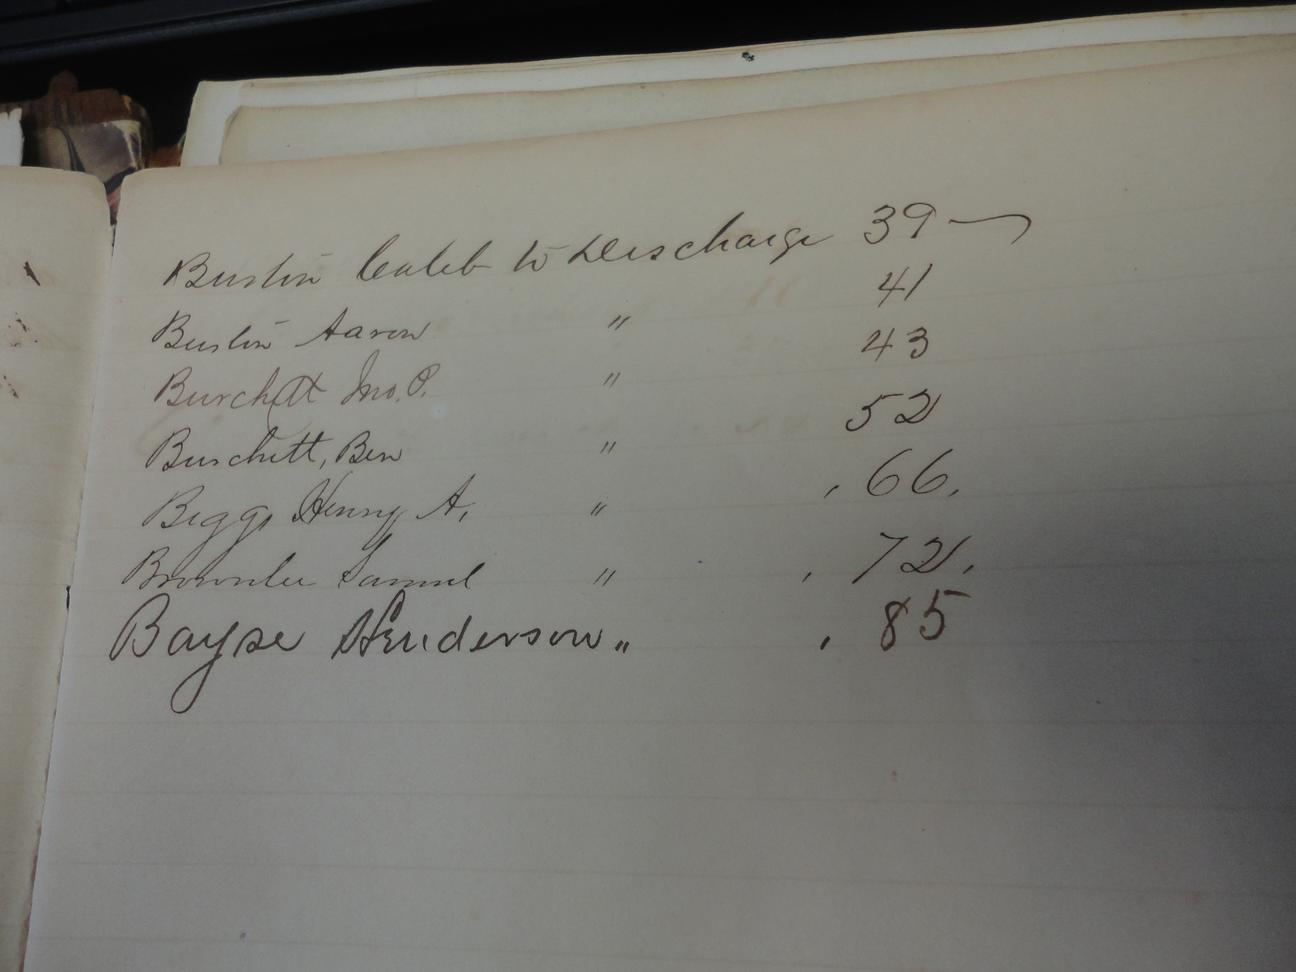 Bustin Caleb to Discharge 39
Bustin Aaron " 41
Burchett Jno. P. " 43
Burchett, Ben " 52
Beggs Henry A. " 66.
Brownlee Samuel " 72.
Bayse Henderson " 85